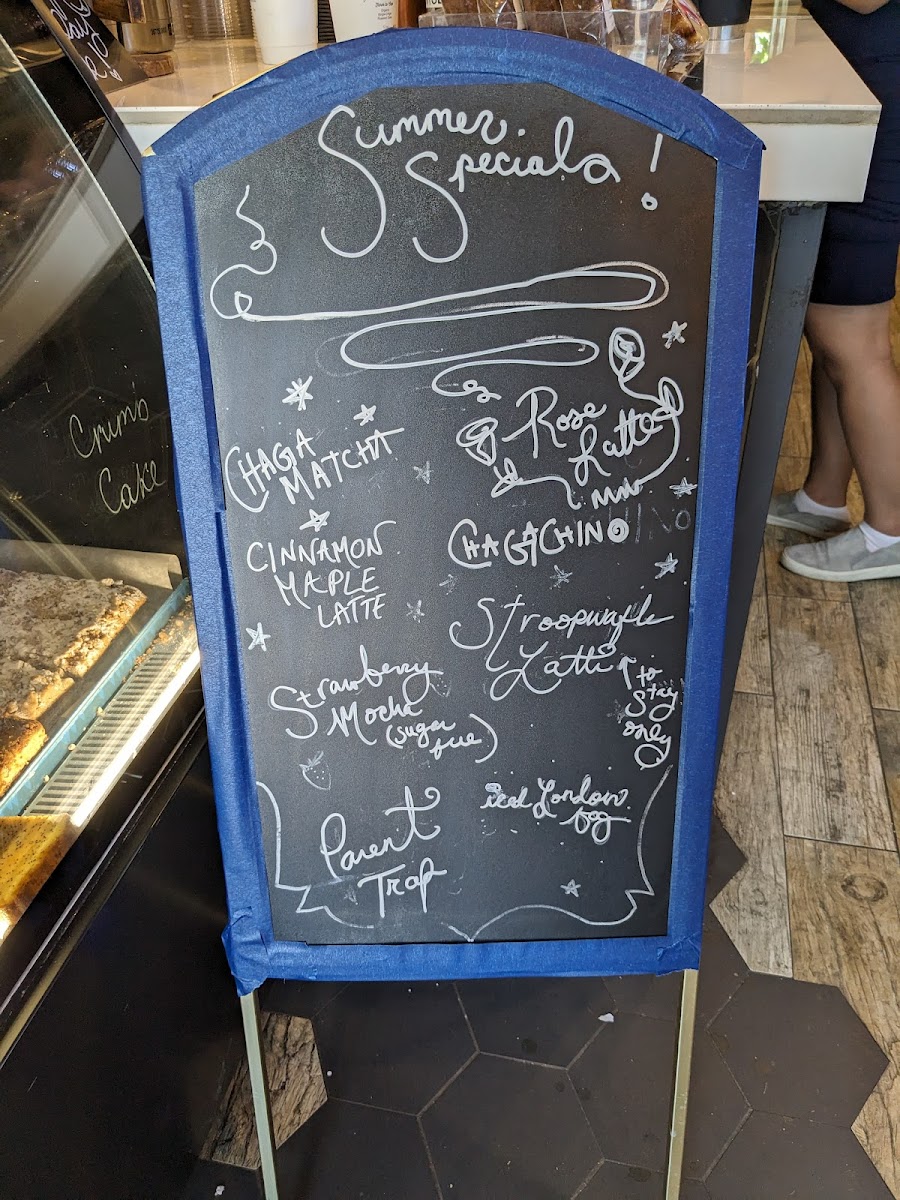 Summer
Specials!
CHAGA
MATCHA
Rose
Latte
CINNAMON
MAPLE
LATTE
CHAGACHINO
Strawberry
Mocha
(sugar
free)
Stroopwafle
Latte
to
stay
only
Parent
Trap
iced London
fog
Crumb
Cake